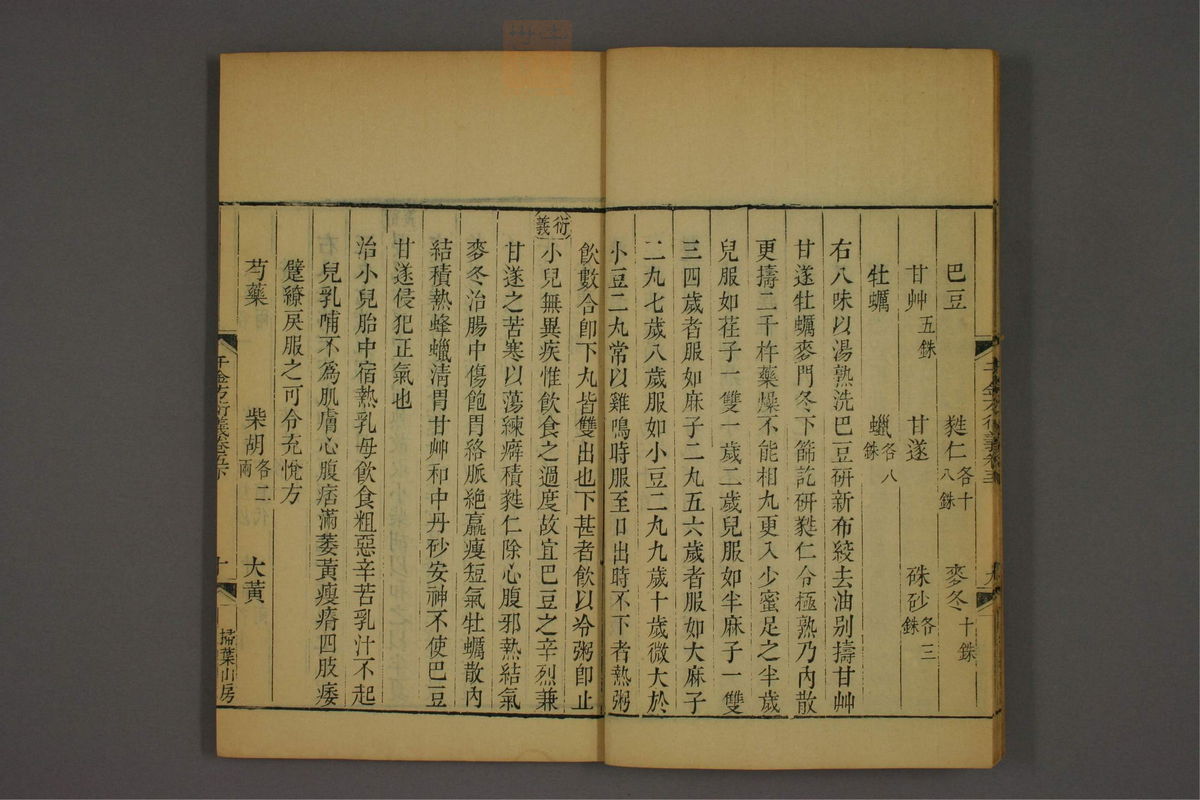 巴豆 蕤仁各十八銖 麥冬十銖
甘艸五銖 甘遂 硃砂各三銖
牡蠣 蠟各八銖
右八味以湯熟洗巴豆研新布絞去油别擣甘艸
甘遂牡蠣麥門冬下篩訖研蕤仁令極熟乃內散
更擣二千杵藥燥不能相丸更入少蜜足之半歲
兒服如荏子一雙一歲二歲兒服如半麻子一雙
三四歲者服如麻子二丸五六歲者服如大麻子
二丸七歲八歲服如小豆二丸九歲十歲微大於
小豆二丸常以雞鳴時服至日出時不下者熱粥
飲數合卽下丸皆雙出也下甚者飲以冷粥卽止
衍義
小兒無異疾惟飲食之過度故宜巴豆之辛烈兼
甘遂之苦寒以蕩練癖積蕤仁除心腹邪熱結氣
麥冬治腸中傷飽胃絡脈絶羸瘦短氣牡蠣散內
結積熱蜂蠟淸胃甘艸和中丹砂安神不使巴豆
甘遂侵犯正氣也
治小兒胎中宿熱乳母飲食粗惡辛苦乳汁不起
兒乳哺不爲肌膚心腹痞滿萎黃瘦瘠四肢痿
躄繚戾服之可令充悅方
芍藥 柴胡各二兩 大黃
千金方衍義卷 十 掃葉山房